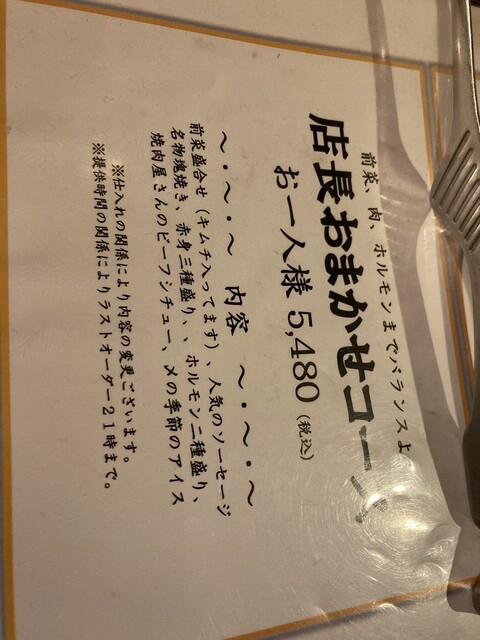 前菜、肉、ホルモンまでバランスよ
店長おまかせコース
お一人様 5,480 (税込)
～・～・～ 内容 ～・～・～
前菜盛合せ（キムチ入ってます）、人気のソーセージ
名物塊焼き、赤身三種盛り、、ホルモン二種盛り、
焼肉屋さんのビーフシチュー、〆の季節のアイス
※仕入れの関係により内容の変更ございます。
※提供時間の関係によりラストオーダー21時まで。